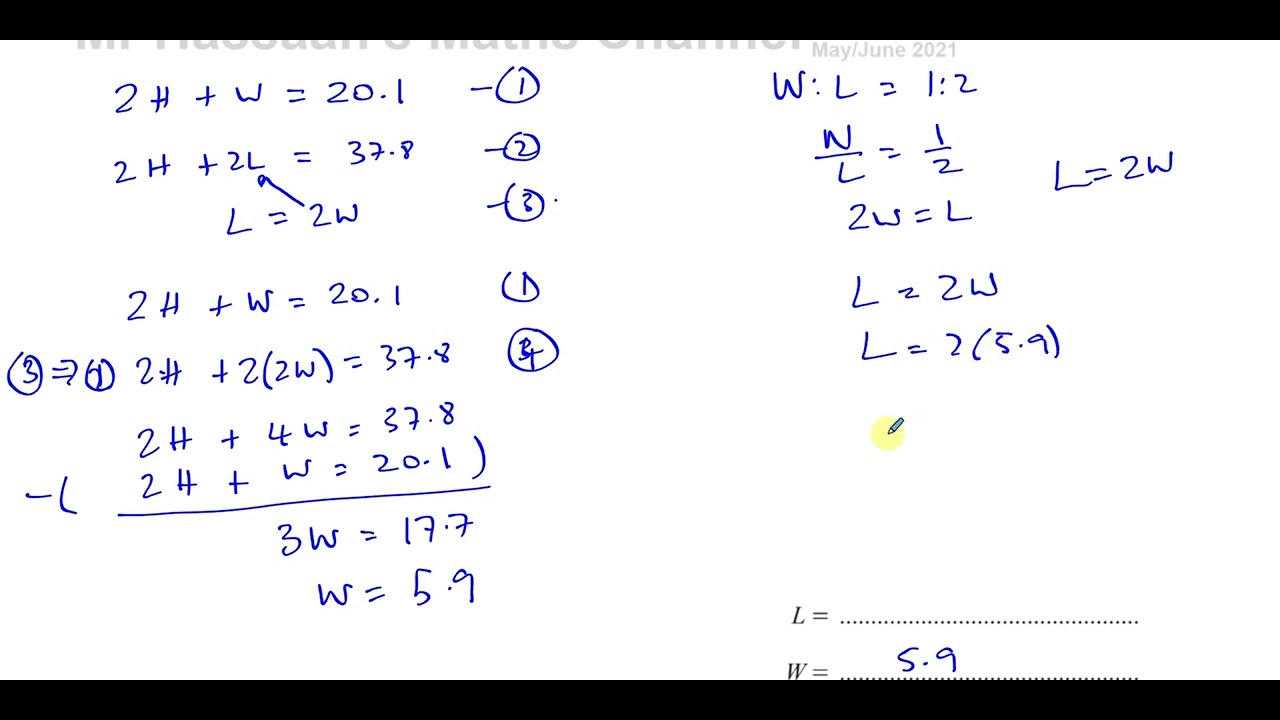 Mr Hassaan's Maths Channel
May/June 2021
2H + W = 20.1 -①
2H + 2L = 37.8 -②
L = 2W -③.
2H + W = 20.1 ①
③ ⇒ ① 2H + 2(2W) = 37.8
2H + 4W = 37.8
-( 2H + W = 20.1 )
3W = 17.7
W = 5.9
W : L = 1:2
W/L = 1/2
L = 2W
2W = L
L = 2W
L = 2(5.9)
L = ................................................
W = 5.9 ................................................